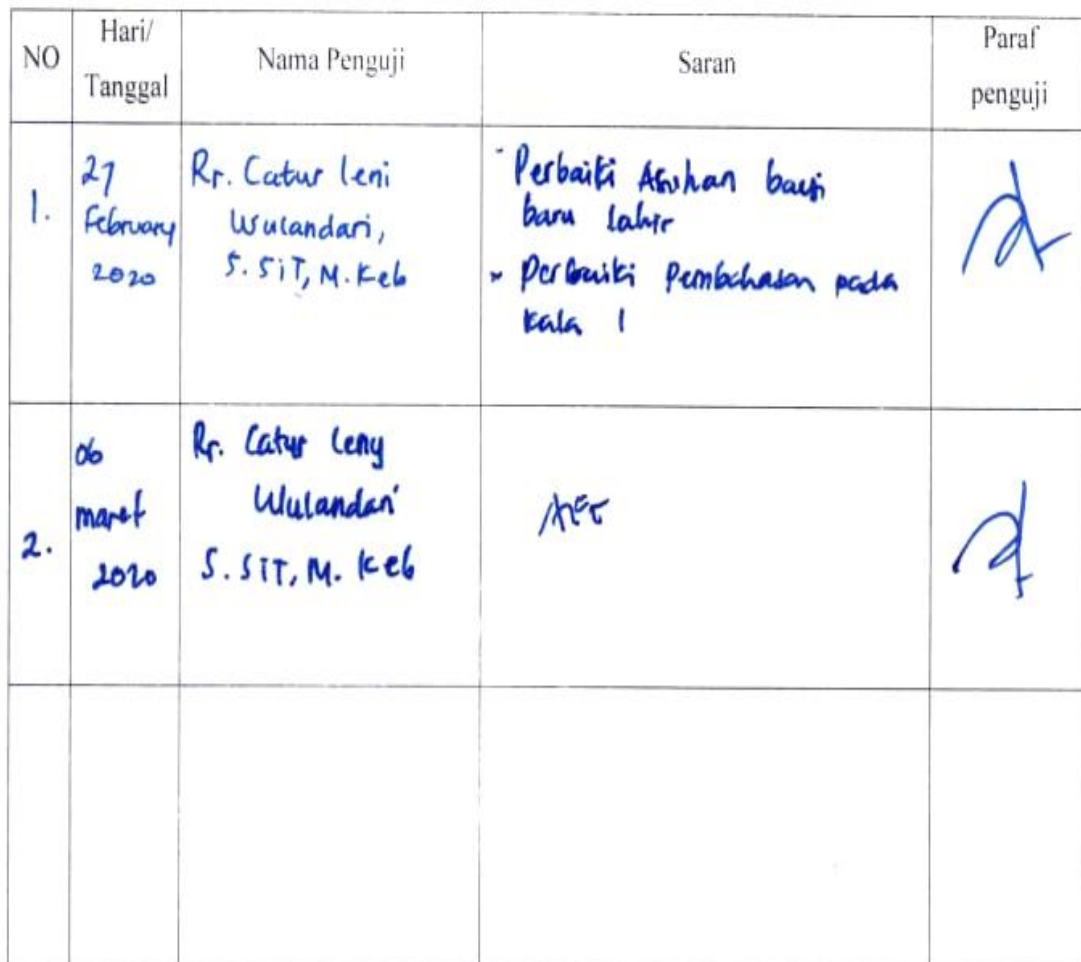 NO
Hari/
Tanggal
Nama Penguji
Saran
Paraf
penguji
1.
27
February
2020
Rr. Catur leni
Wulandari,
S.SiT, M.Keb
- Perbaiki Asuhan bayi
baru lahir
- Perbaiki Pembahasan pada
kala 1
2.
06
maret
2020
Rr. Catur Leny
Wulandari
S.SiT, M. Keb